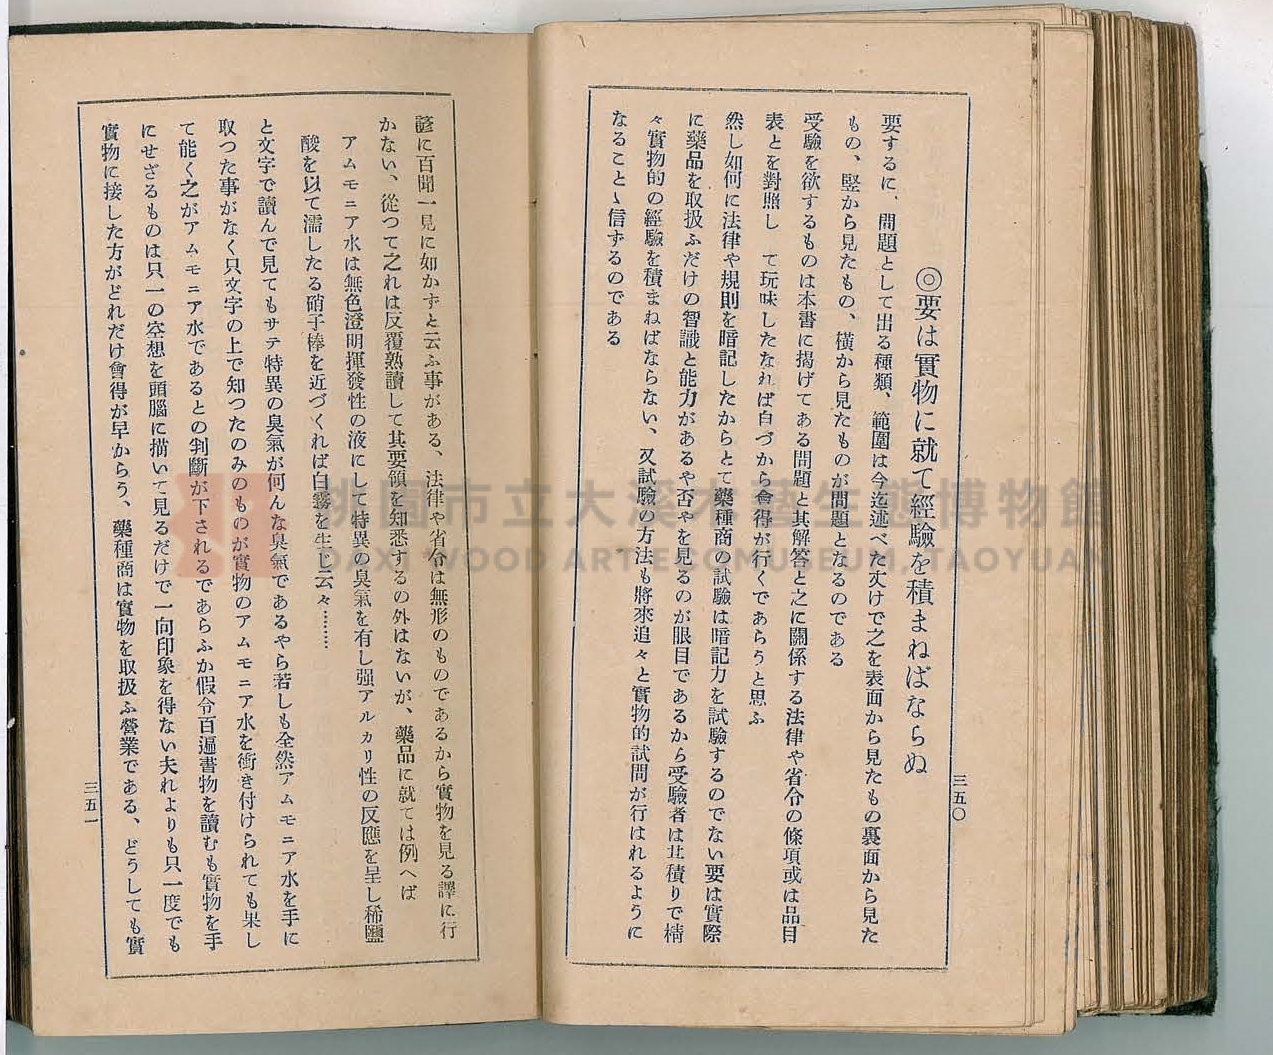 ◎要は實物に就て經驗を積まねばならぬ
要するに、問題として出る種類、範圍は今迄述べた丈けで之を表面から見たもの裏面から見た
もの、竪から見たもの、横から見たものが問題となるのである
受驗を欲するものは本書に揭げてある問題と其解答と之に關係する法律や省令の條項或は品目
表とを對照し て玩味したなれば自づから會得が行くであらうと思ふ
然し如何に法律や規則を暗記したからとて藥種商の試驗は暗記力を試驗するのでない要は實際
に藥品を取扱ふだけの智識と能力があるや否やを見るのが眼目であるから受驗者は其積りで精
々實物的の經驗を積まねばならない、又試驗の方法も將來追々と實物的試問が行はれるように
なることゝ信ずるのである
三五〇
諺に百聞一見に如かずと云ふ事がある、法律や省令は無形のものであるから實物を見る譯に行
かない、從つて之れは反覆熟讀して其要領を知悉するの外はないが、藥品に就ては例へば
アムモニア水は無色澄明揮發性の液にして特異の臭氣を有し强アルカリ性の反應を呈し稀鹽
酸を以て濡したる硝子棒を近づくれば白霧を生じ云々………
と文字で讀んで見てもサテ特異の臭氣が何んな臭氣であるやら若しも全然アムモニア水を手に
取つた事がなく只文字の上で知つたのみのものが實物のアムモニア水を衝き付けられても果し
て能く之がアムモニア水であるとの判斷が下されるであらふか假令百遍書物を讀むも實物を手
にせざるものは只一の空想を頭腦に描いて見るだけで一向印象を得ない夫れよりも只一度でも
實物に接した方がどれだけ會得が早からう、藥種商は實物を取扱ふ營業である、どうしても實
三五一
桃園市立大溪木藝生態博物館
DAXI WOOD ART ECOMUSEUM, TAOYUAN